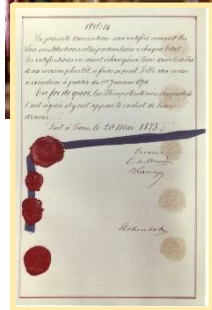 Art: 14
La présente convention sera ratifiée suivant les
lois constitutionnelles particulières à chaque Etat
les ratifications en seront échangées à Paris dans le délai
de six mois ou plus tôt, si faire se peut. Elle sera mise
à exécution à partir du 1er Janvier 1876.
En foi de quoi, les Plénipotentiaires respectifs
l'ont signée et y ont apposé le cachet de leurs
armes.
Fait à Paris, le 20 Mai 1875
Hohenlohe